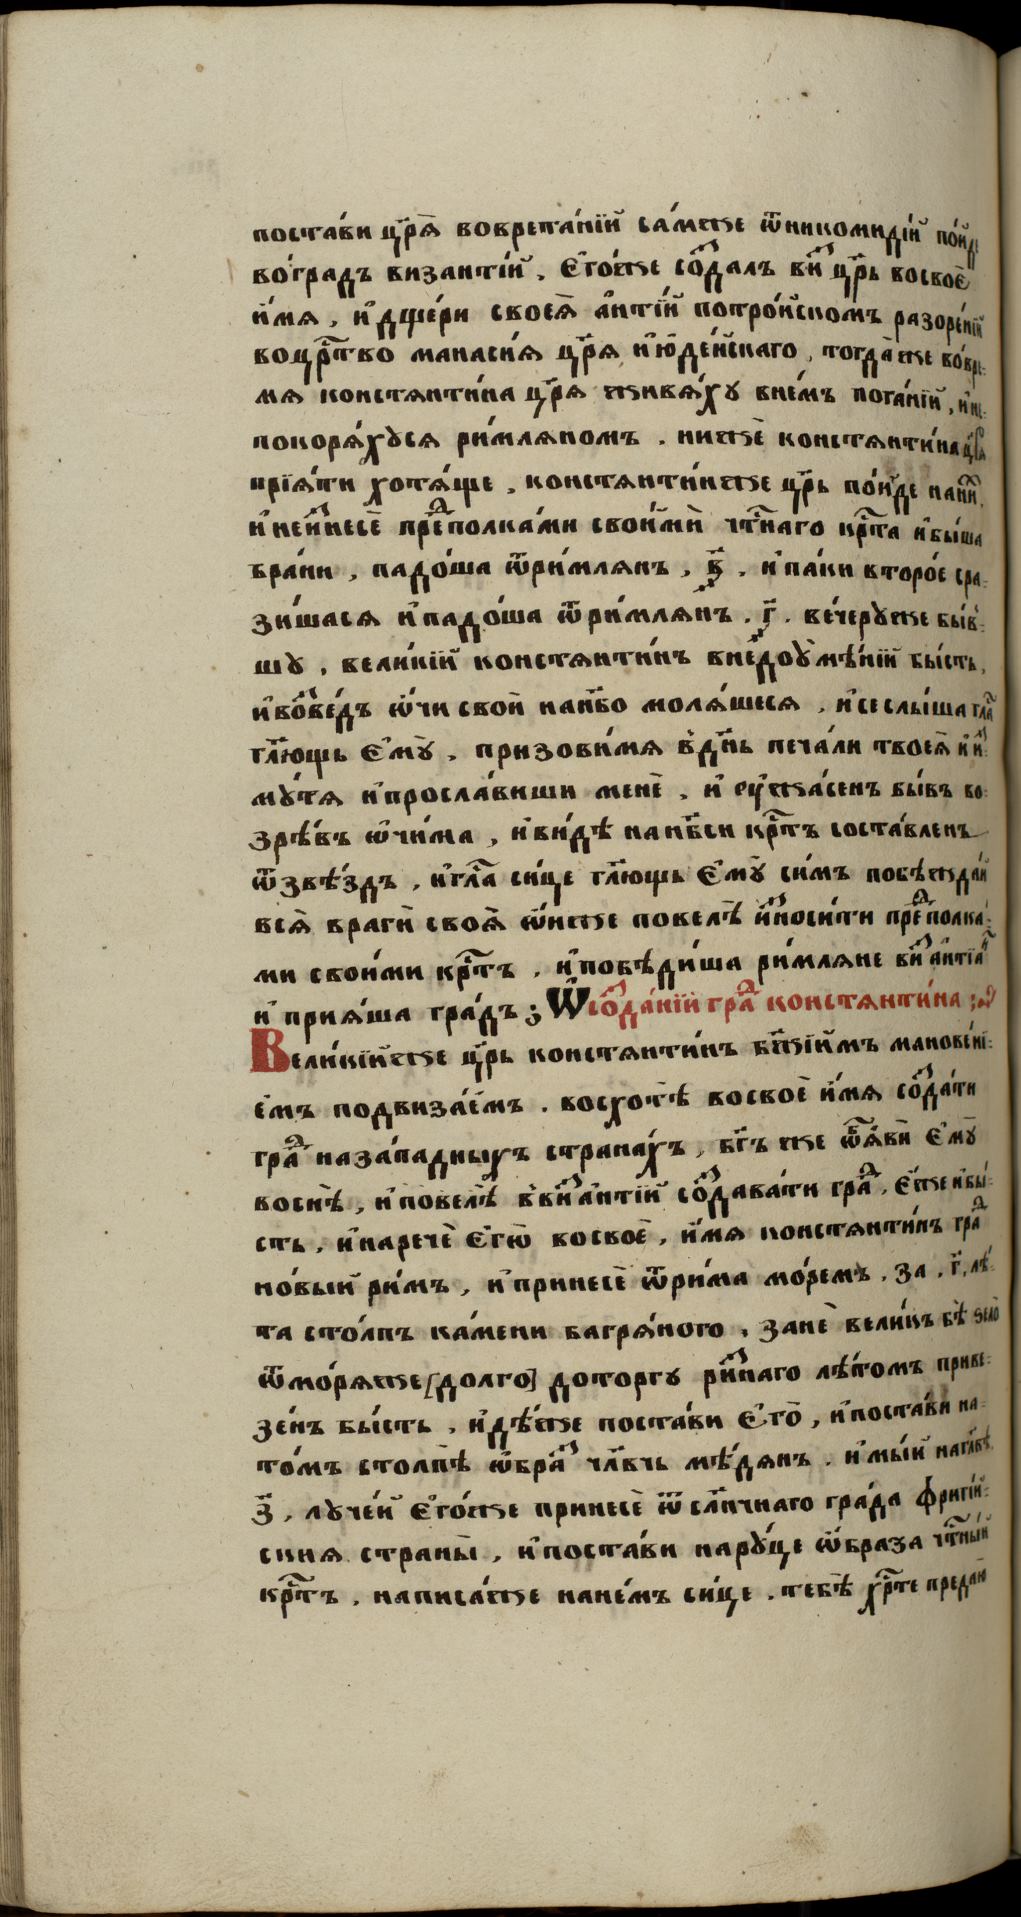 поста́ви цр҃ѧ̀ вовретанїй са́мже ѿникомиді́й по́йде
во́градъ византі́й. є҆го́же со́здалъ ви́з цр҃ь восвоѐ
и҆́мѧ, и҆дще́ри своеѧ̀ а҆нті́и потро́йскомъ разоре́нїй
воцр҃тво манаси́ѧ цр҃ѧ и҆ю҆де́йскаго, тогда̀же во́вре:
мѧ констѧнти́на цр҃ѧ живѧ́хꙋ вне́мъ пога́нїй, и҆не:
покорѧ́хꙋсѧ ри́млѧномъ. нижѐ констѧнти́на цр҃ѧ
прїѧ́ти хотѧ́ще, констѧнти́нже цр҃ь по́йде нани́х,
и҆нѐйнесѐ пре́дполка́ми свои́ми чтⷭ҇наго крⷭ҇та и҆бы́ша
бра́ни, падо́ша ѿри́млѧнъ, ҂в҃. и҆па́ки второ́е сра:
зи́шасѧ и҆падо́ша ѿри́млѧнъ. ҂г҃. ве́черꙋже бы́в:
шꙋ, вели́кїй констѧнти́нъ внедоꙋмѣ́нїй бы́сть,
и҆возве́дъ ѡ҆́чи свои̑ нанб҃о молѧ́шесѧ, и҆се слы́ша гла́с
гл҃ющь є҆мꙋ̀, призови́мѧ в̾дн҃ь печа́ли твоеѧ̀ и҆и҆з:
мꙋ́тѧ и҆просла́виши менѐ, и҆ ѹ҆жа́сенъ бы́въ во:
зрѣ́въ ѡ҆чи́ма, и҆ви́дѣ нанб҃си крⷭ҇тъ соста́вленъ
ѿзвѣ́здъ, и҆гла́с си́це гл҃ющь є҆мꙋ̀ си́мъ побѣжда́й
всѧ̀ враги̑ своѧ̑ ѻ҆́нже повелѣ̀ и҆́зноси́ти пре́дполка:
ми свои́ми крⷭ҇тъ, и҆побѣди́ша ри́млѧне ви́зантїан
и҆ прїѧ́ша гра́дъ; Ѡ҆созда́нїй гра́да констѧнти́на;
Вели́кїйже цр҃ь констѧнти́нъ бж҃їимъ манове́нї:
емъ подвиза́емъ. восхотѣ̀ восвоѐ и҆́мѧ созда́ти
гра́д наза́падныхъ страна́хъ, бг҃ъ же ѿѧви̑ є҆мꙋ̀
воснѣ̀, и҆повелѣ̀ в̾ви́занті́й создава́ти гра́д, є҆́же и҆бы́:
сть, и҆наречѐ є҆гѡ̀ восвоѐ, и҆́мѧ констѧнти́нъ гра́д
но́вый ри́мъ, и҆принесѐ ѿри́ма мо́ремъ, за, г҃, лѣ́:
та сто́лпъ ка́мени багрѧ́ного, занѐ вели́къ бѣ̀ ѕѣлѡ̀
ѿмо́рѧже [долго] доторгꙋ ри́мнаго лѣ́томъ приве:
зе́нъ бы́сть, и҆дѣ́же поста́ви є҆го̀, и҆поста́ви на:
то́мъ столпѣ̀ ѡ҆бра́з чл҃вчь мѣ́дѧнъ. и҆мы́й наглавѣ̀,
з҃, лꙋче́й є҆го́же принесѐ ѿ сл҃нчнаго гра́да фриги́й:
скиѧ страны̀, и҆поста́ви нарꙋ́це ѡ҆́браза чтⷭ҇ный
крⷭ҇тъ, написа́же нане́мъ си́це. тебѣ̀ хрⷭ҇те предаю̀